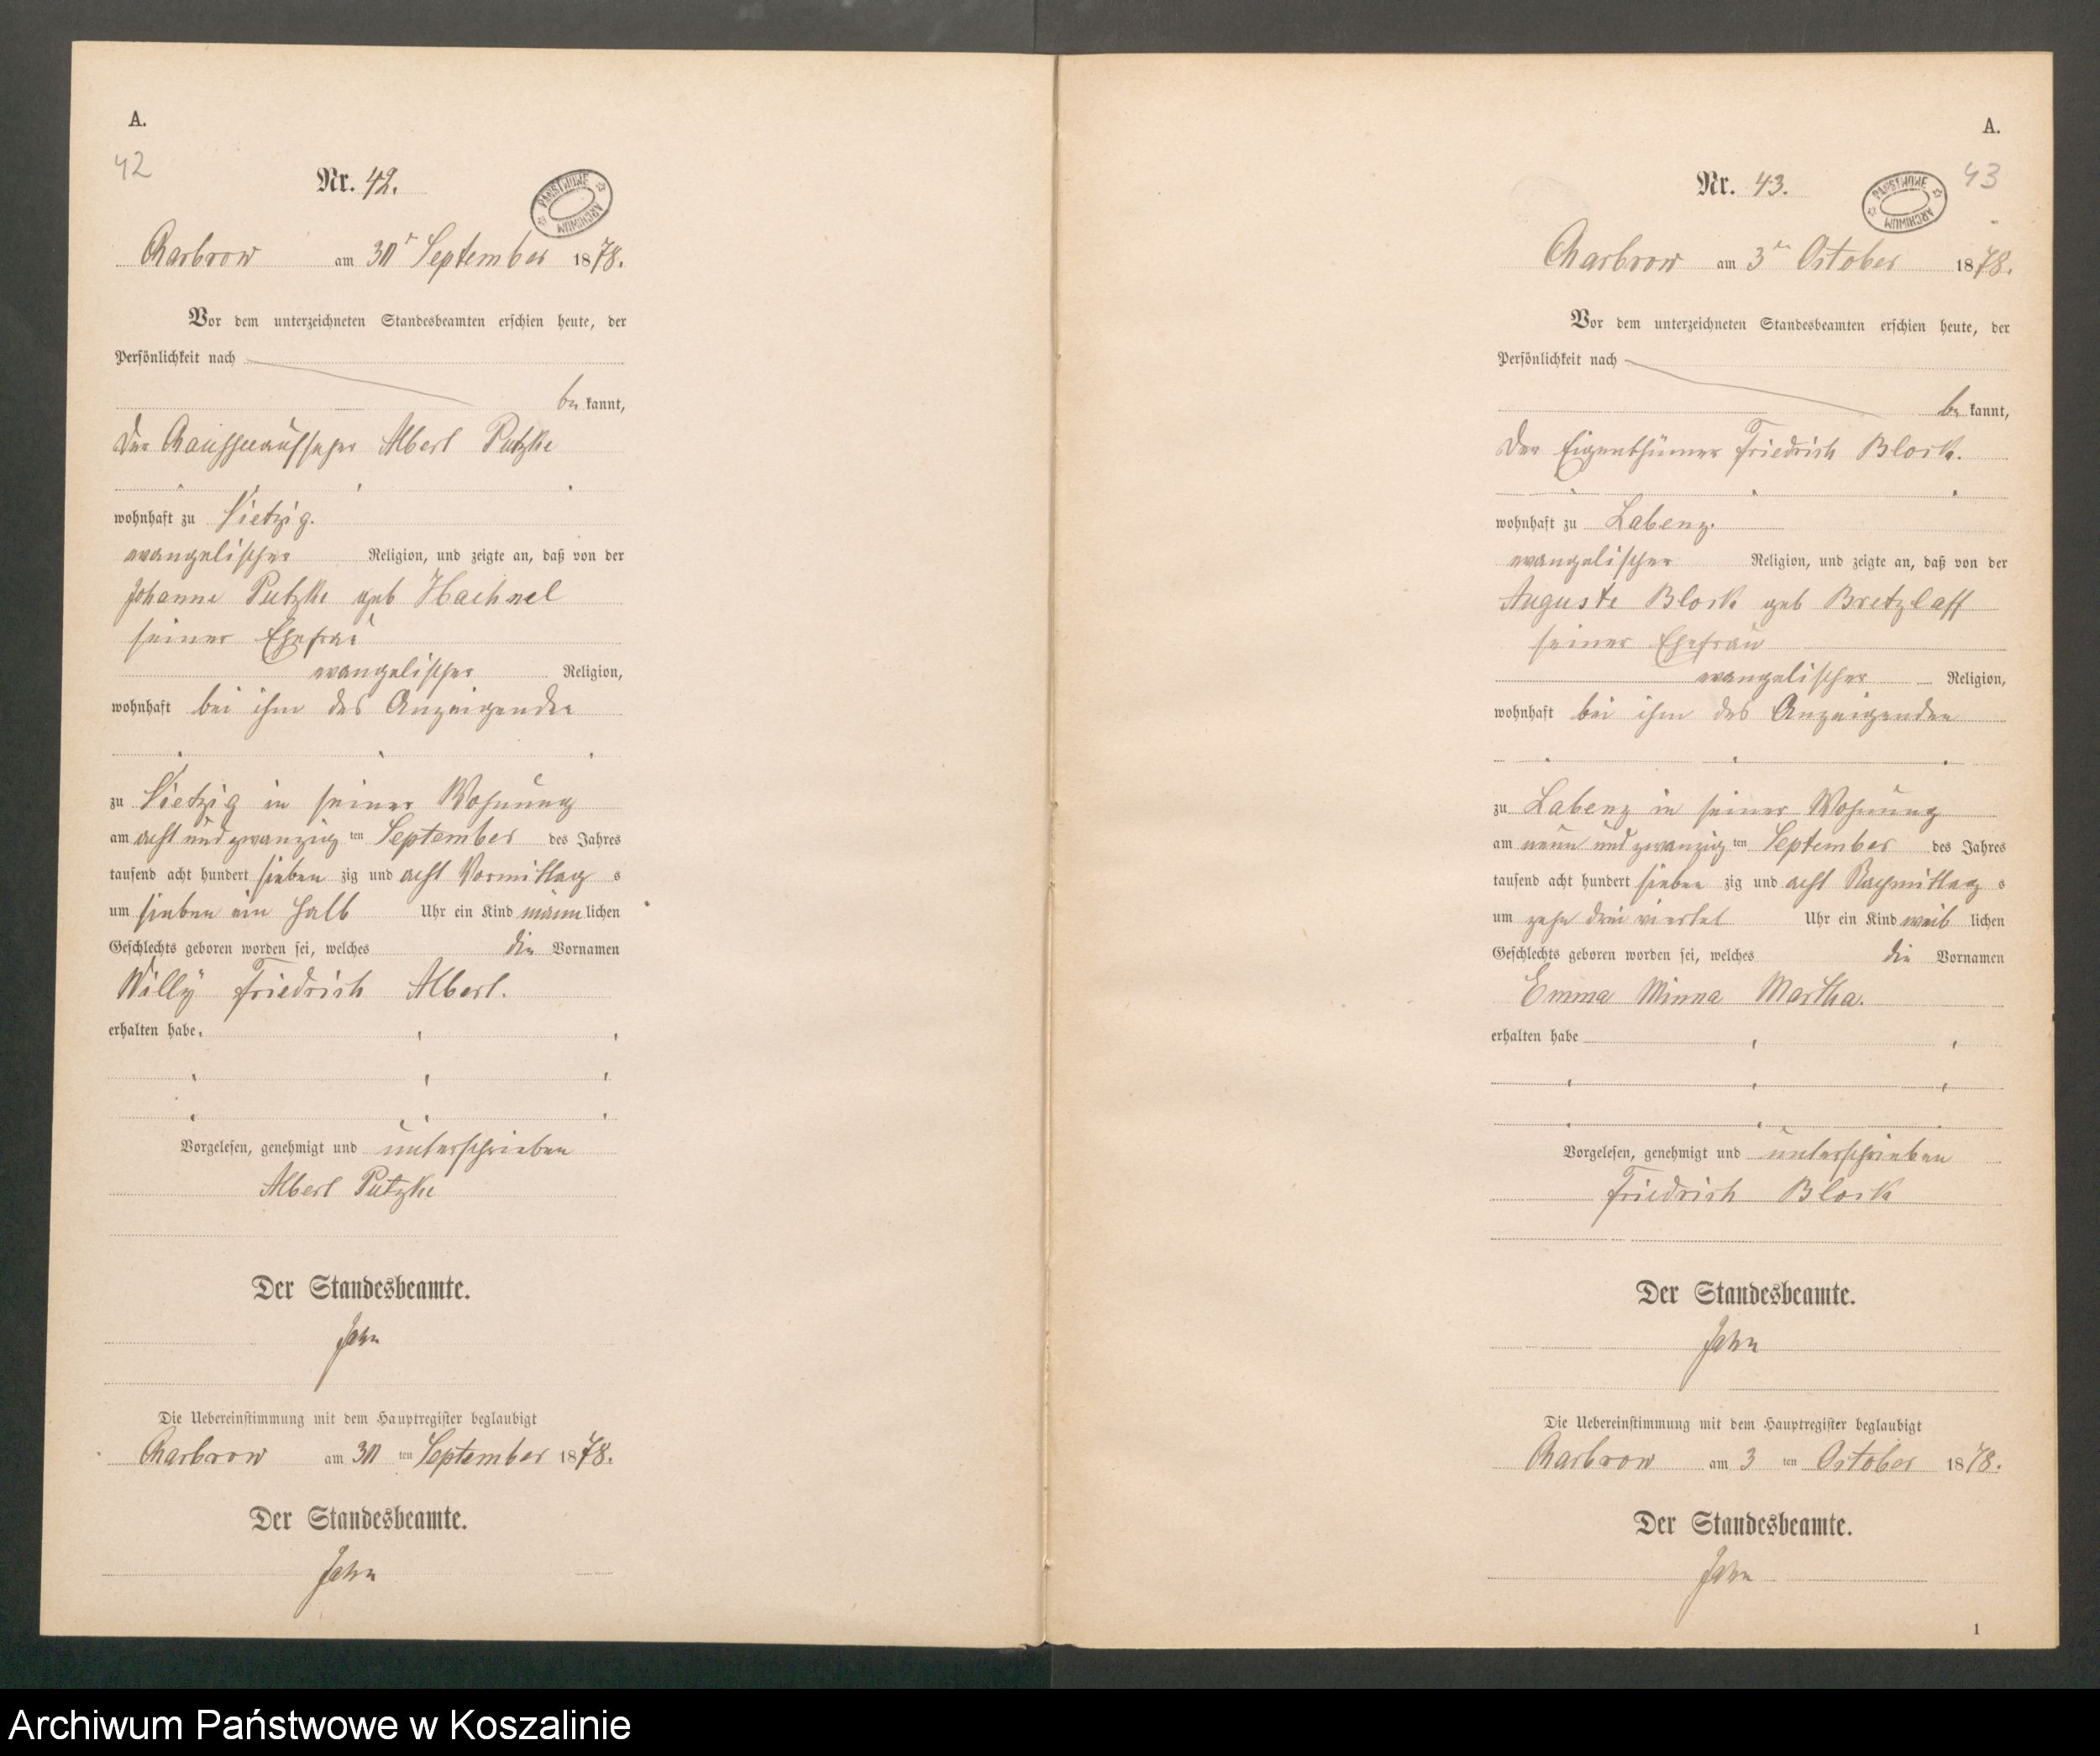 A.
42
Nr. 42.
PAŃSTWOWE ARCHIWUM
Charbrow am 30 September 1878.
Vor dem unterzeichneten Standesbeamten erschien heute, der
Persönlichkeit nach
be kannt,
der Chausseeaufseher Albert Putzke
wohnhaft zu Vietzig.
evangelischer Religion, und zeigte an, daß von der
Johanne Putzke geb Haehnel
seiner Ehefrau
evangelischer Religion,
wohnhaft bei ihm des Anzeigenden
zu Vietzig in seiner Wohnung
am acht und zwanzig ten September des Jahres
tausend acht hundert sieben zig und acht Vormittag s
um sieben ein halb Uhr ein Kind männ lichen
Geschlechts geboren worden sei, welches die Vornamen
Willÿ Friedrich Albert.
erhalten habe.
Vorgelesen, genehmigt und unterschrieben
Albert Putzke
Der Standesbeamte.
Jahn
Die Uebereinstimmung mit dem Hauptregister beglaubigt
Charbrow am 30 ten September 1878.
Der Standesbeamte.
Jahn
A.
43
Nr. 43.
PAŃSTWOWE ARCHIWUM
Charbrow am 3 October 1878.
Vor dem unterzeichneten Standesbeamten erschien heute, der
Persönlichkeit nach
be kannt,
der Eigenthümer Friedrich Block.
wohnhaft zu Labenz.
evangelischer Religion, und zeigte an, daß von der
Auguste Block geb Bretzlaff
seiner Ehefrau
evangelischer Religion,
wohnhaft bei ihm des Anzeigenden
zu Labenz in seiner Wohnung
am neun und zwanzig ten September des Jahres
tausend acht hundert sieben zig und acht Nachmittag s
um zehn drei viertel Uhr ein Kind weib lichen
Geschlechts geboren worden sei, welches die Vornamen
Emma Minna Martha.
erhalten habe
Vorgelesen, genehmigt und unterschrieben
Friedrich Block
Der Standesbeamte.
Jahn
Die Uebereinstimmung mit dem Hauptregister beglaubigt
Charbrow am 3 ten October 1878.
Der Standesbeamte.
Jahn
1
Archiwum Państwowe w Koszalinie